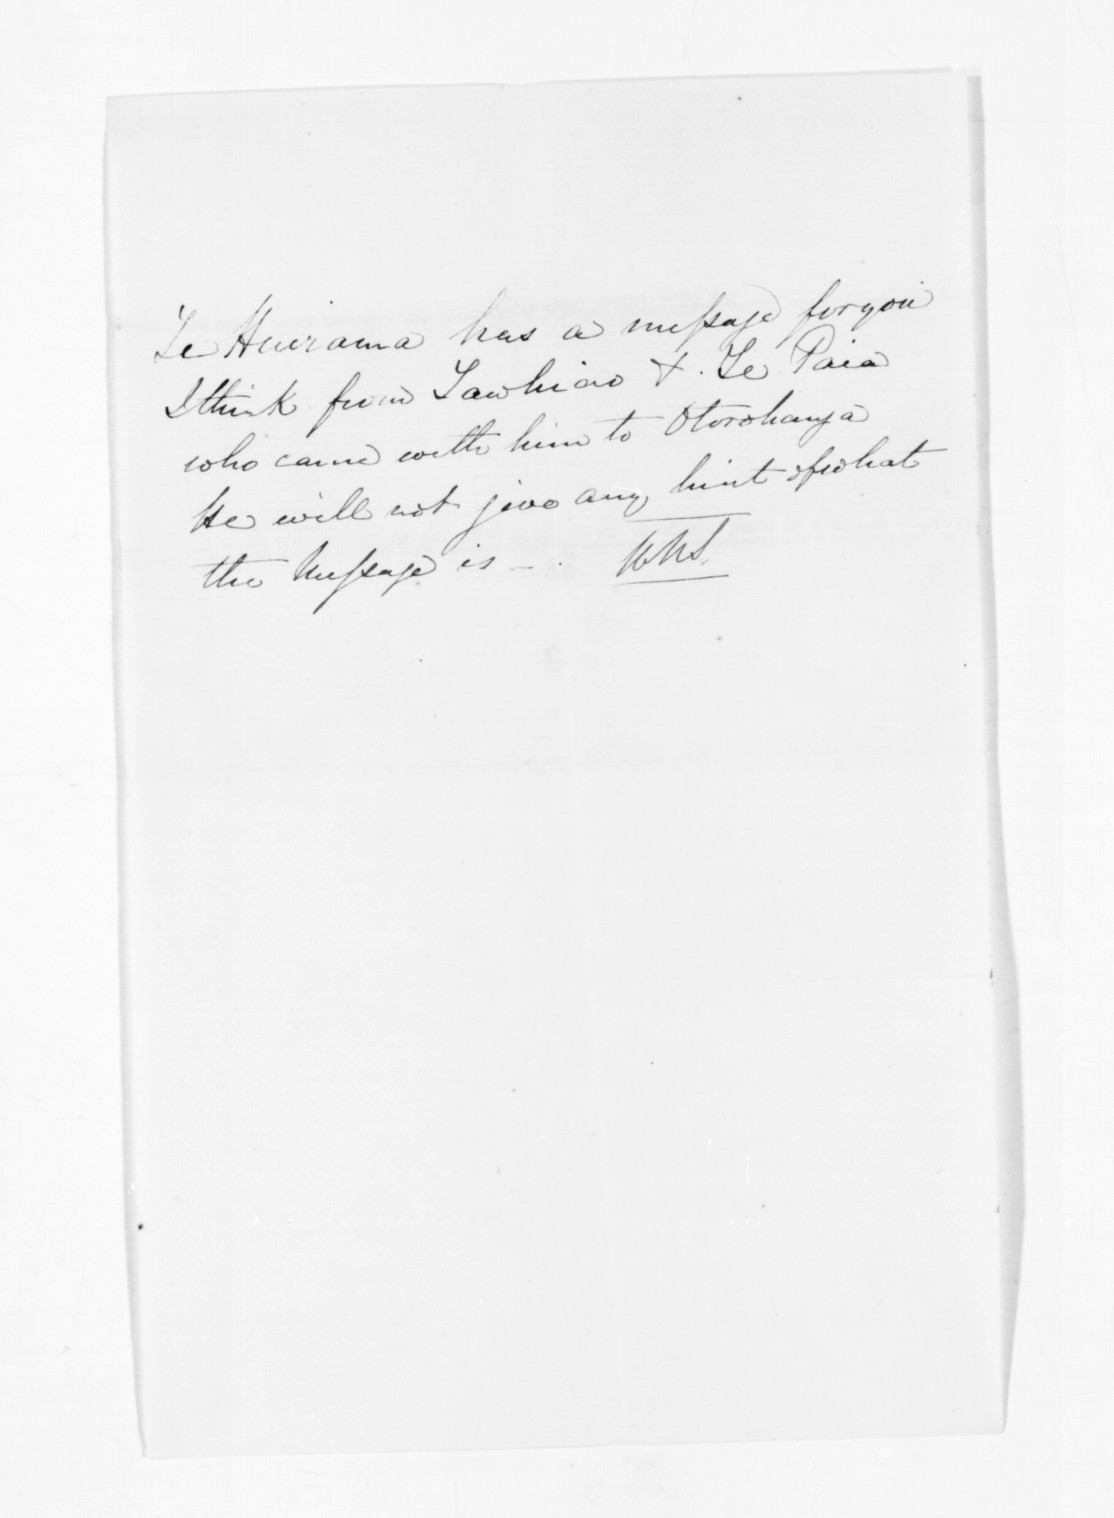 Te Huirama has a message for you
I think from Tawhiao & Te Paia
who came with him to Otorohanga
He will not give any hint of what
the Message is _ .